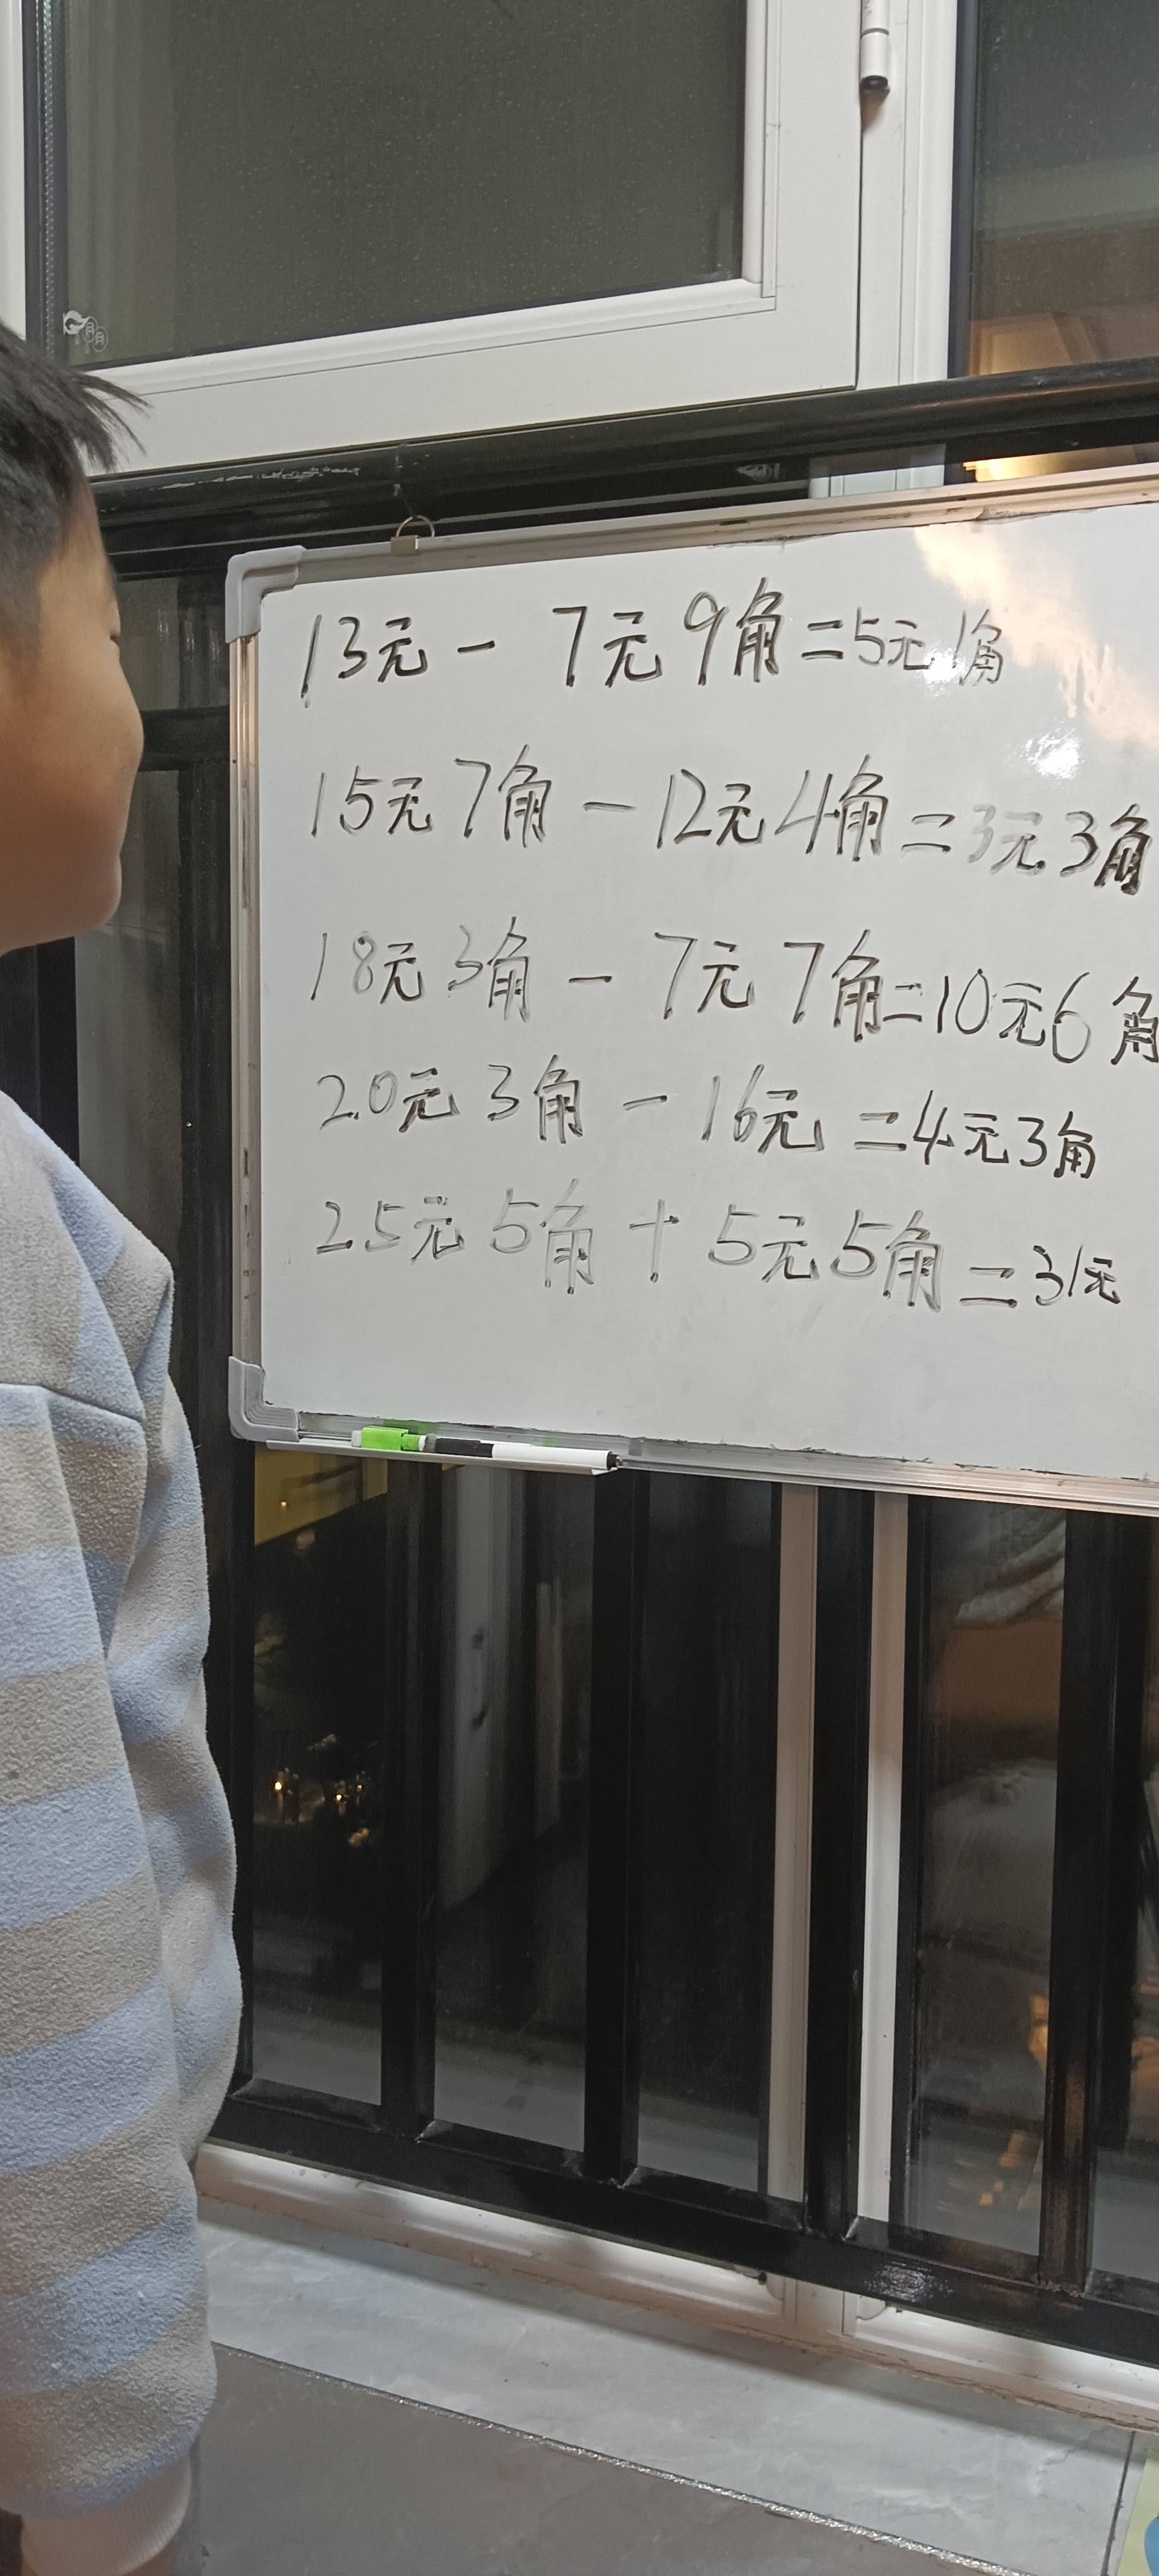 13元-7元9角=5元1角
15元7角-12元4角=3元3角
18元3角-7元7角=10元6角
20元3角-16元=4元3角
25元5角+5元5角=31元